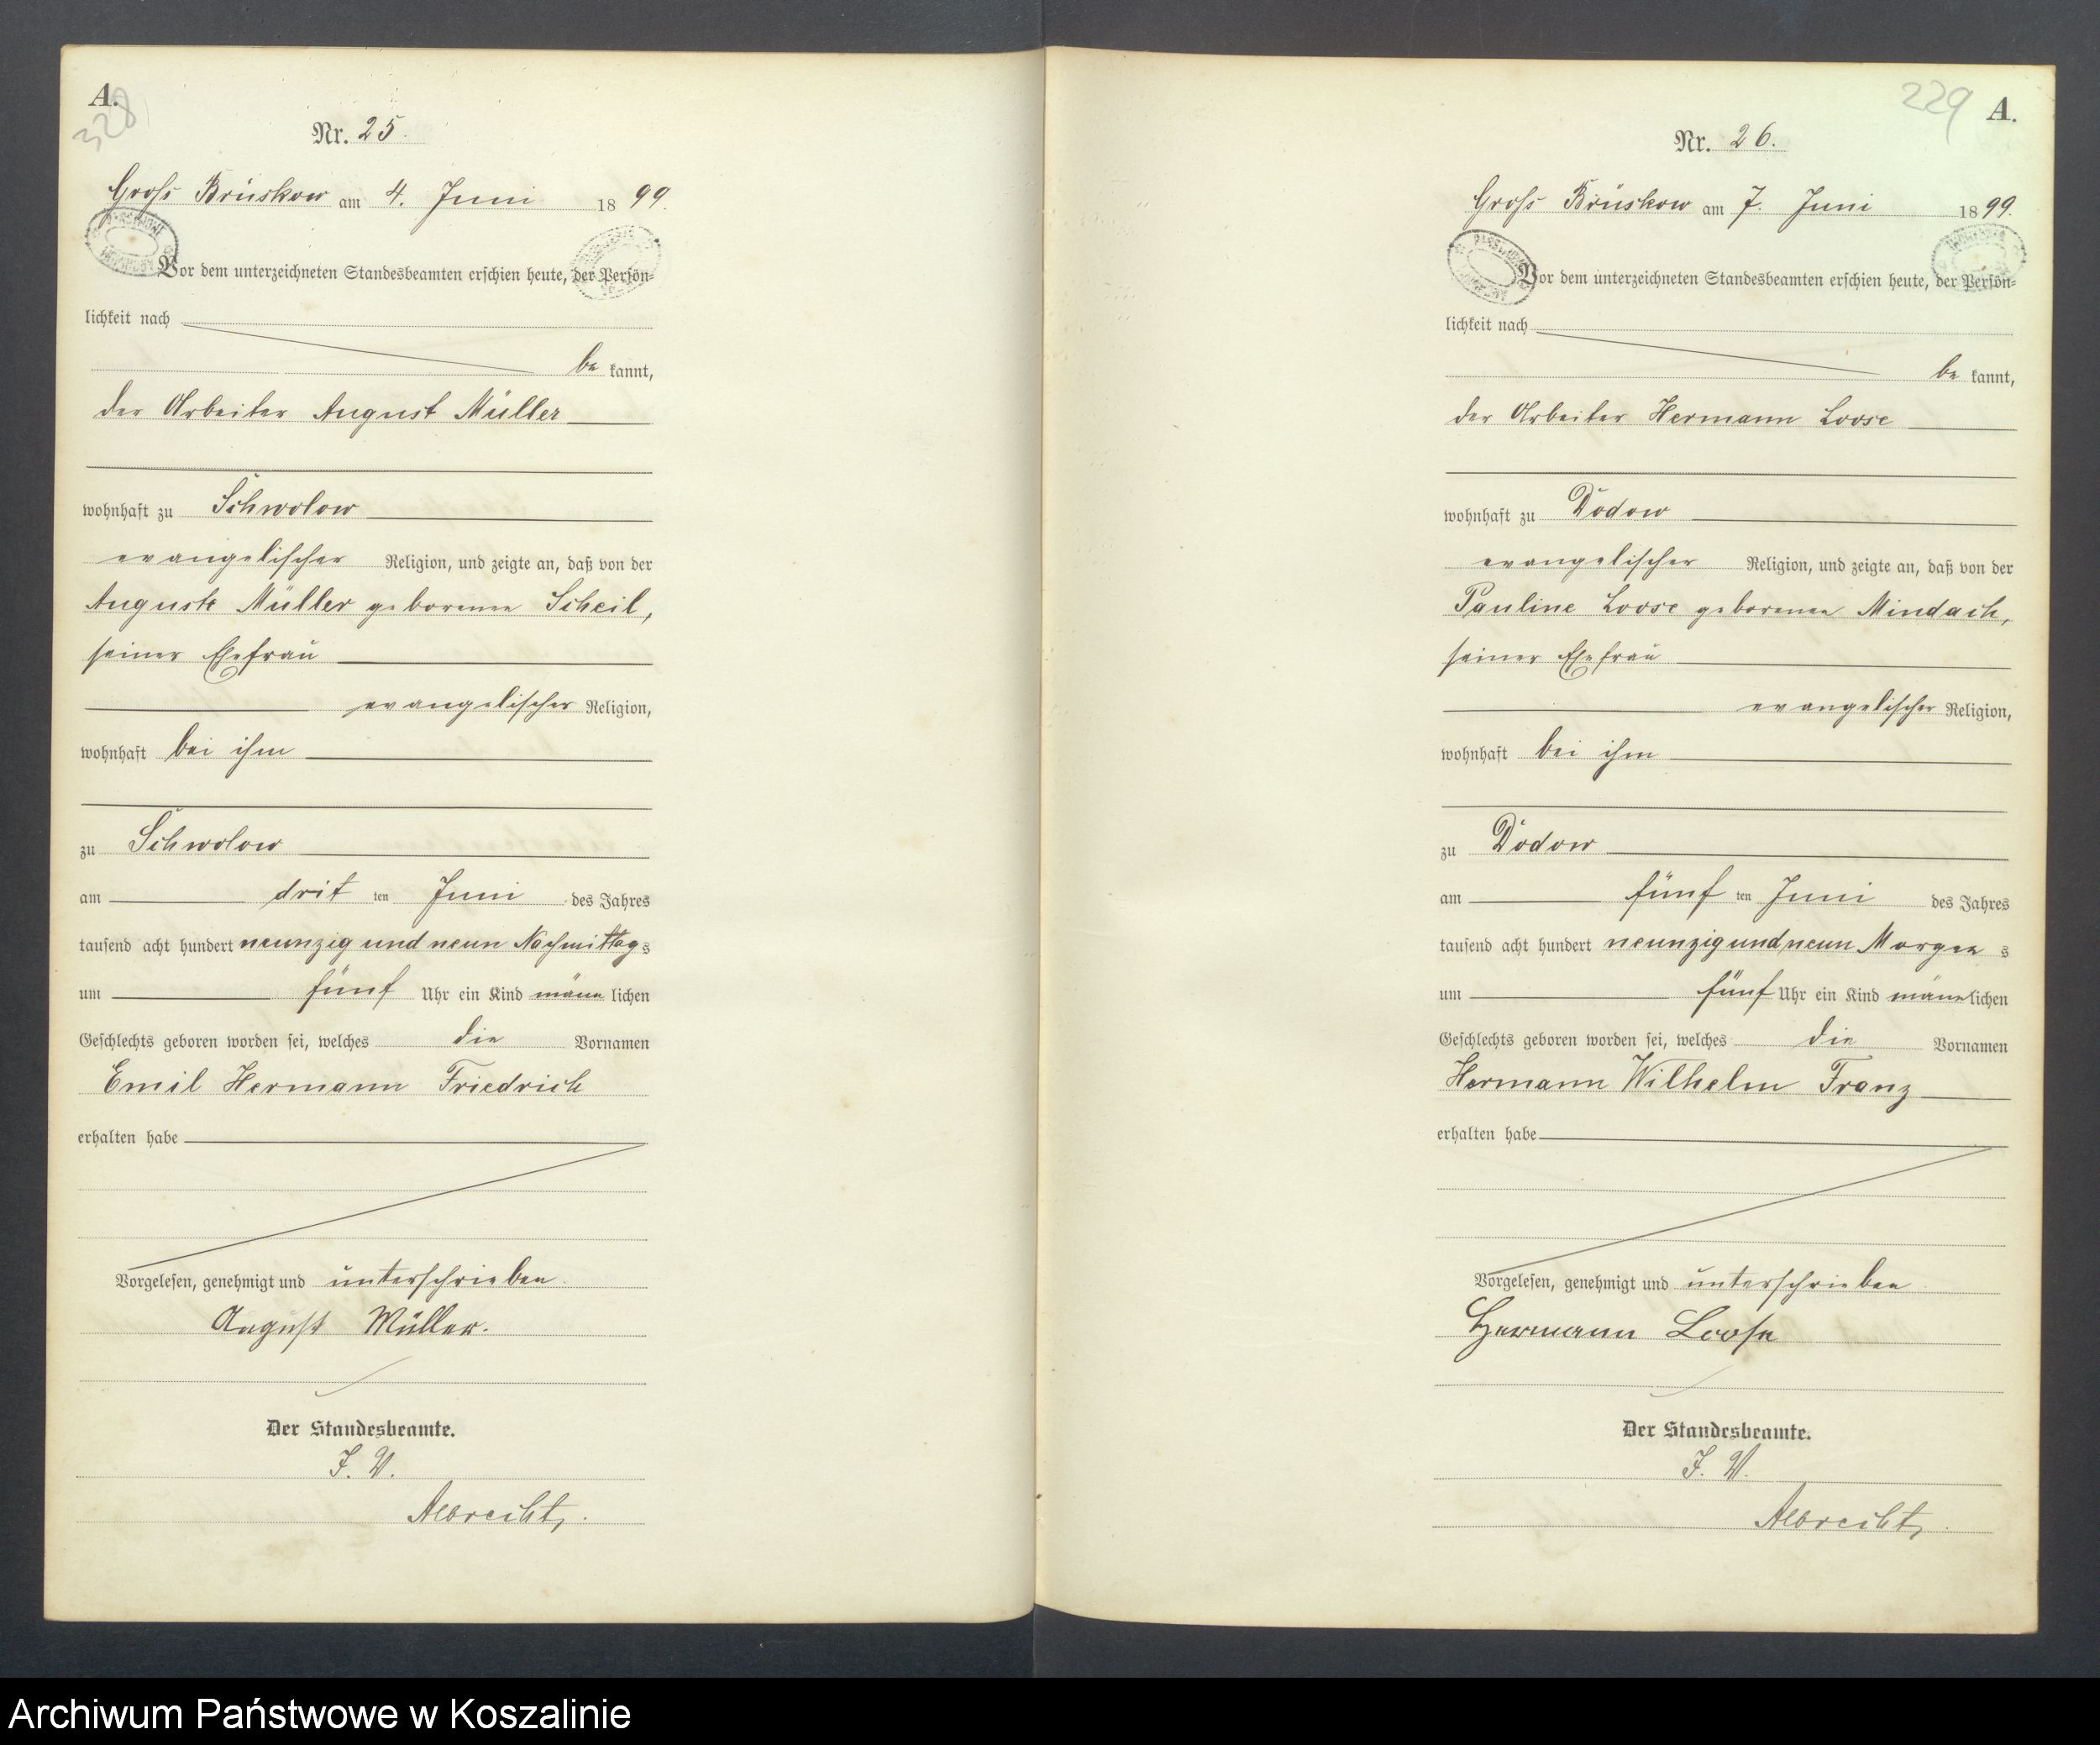 A.
328
Nr. 25.
Groß Brüskow am 4. Juni 1899.
Vor dem unterzeichneten Standesbeamten erschien heute, der Persön-
lichkeit nach
be kannt,
der Arbeiter August Müller
wohnhaft zu Schwolow
evangelischer Religion, und zeigte an, daß von der
Auguste Müller geborenen Scheil,
seiner Ehefrau
evangelischer Religion,
wohnhaft bei ihm
zu Schwolow
am dritten Juni des Jahres
tausend acht hundert neunzig und neun Nachmittags
um fünf Uhr ein Kind männlichen
Geschlechts geboren worden sei, welches die Vornamen
Emil Hermann Friedrich
erhalten habe
Vorgelesen, genehmigt und unterschrieben.
August Müller.
Der Standesbeamte.
J. V.
Albrecht.
229
A.
Nr. 26.
Groß Brüskow am 7. Juni 1899.
Vor dem unterzeichneten Standesbeamten erschien heute, der Persön-
lichkeit nach
be kannt,
der Arbeiter Hermann Loose
wohnhaft zu Dodow
evangelischer Religion, und zeigte an, daß von der
Pauline Loose geborenen Mindach,
seiner Ehefrau
evangelischer Religion,
wohnhaft bei ihm
zu Dodow
am fünften Juni des Jahres
tausend acht hundert neunzig und neun Morgens
um fünf Uhr ein Kind männlichen
Geschlechts geboren worden sei, welches die Vornamen
Hermann Wilhelm Franz
erhalten habe
Vorgelesen, genehmigt und unterschrieben.
Hermann Loose
Der Standesbeamte.
J. V.
Albrecht.
Archiwum Państwowe w Koszalinie